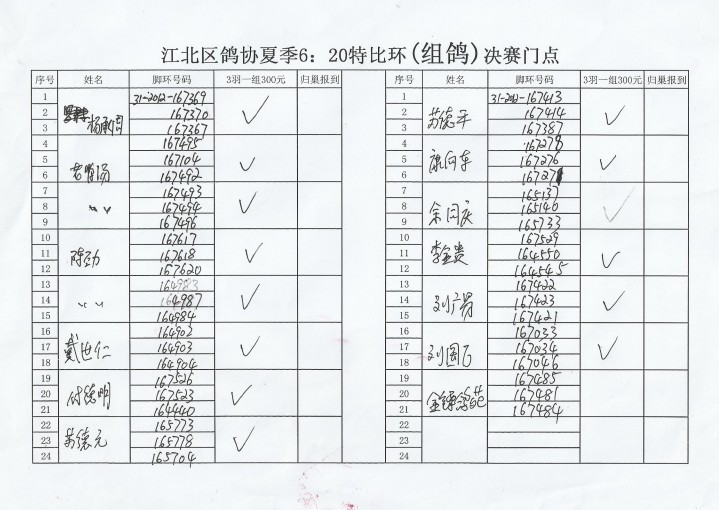 江北区鸽协夏季6：20特比环(组鸽)决赛门点
序号 姓名 脚环号码 3羽一组300元 归巢报到
1 31-2012-167369
2 167370 ✓
3 167367
4 167495
5 167104 ✓
6 167492
7 167493
8 〃 167494 ✓
9 167496
10 167617
11 陈劲 167618 ✓
12 167620
13 164983
14 〃 164987 ✓
15 164984
16 164902
17 戴世仁 164903 ✓
18 164904
19 167526
20 付德明 167523 ✓
21 164440
22 165773
23 德元 165778 ✓
24 165704
序号 姓名 脚环号码 3羽一组300元 归巢报到
1 31-2012-167413
2 苏德平 167414 ✓
3 167387
4 167278
5 康向东 167276 ✓
6 16727
7 165137
8 余国庆 165140 ✓
9 165733
10 167529
11 李金贵 164550 ✓
12 164545
13 167422
14 刘广男 167423 ✓
15 167421
16 167033
17 刘国 167034 ✓
18 167046
19 167485
20 鸽苑 167481
21 167484
22
23
24